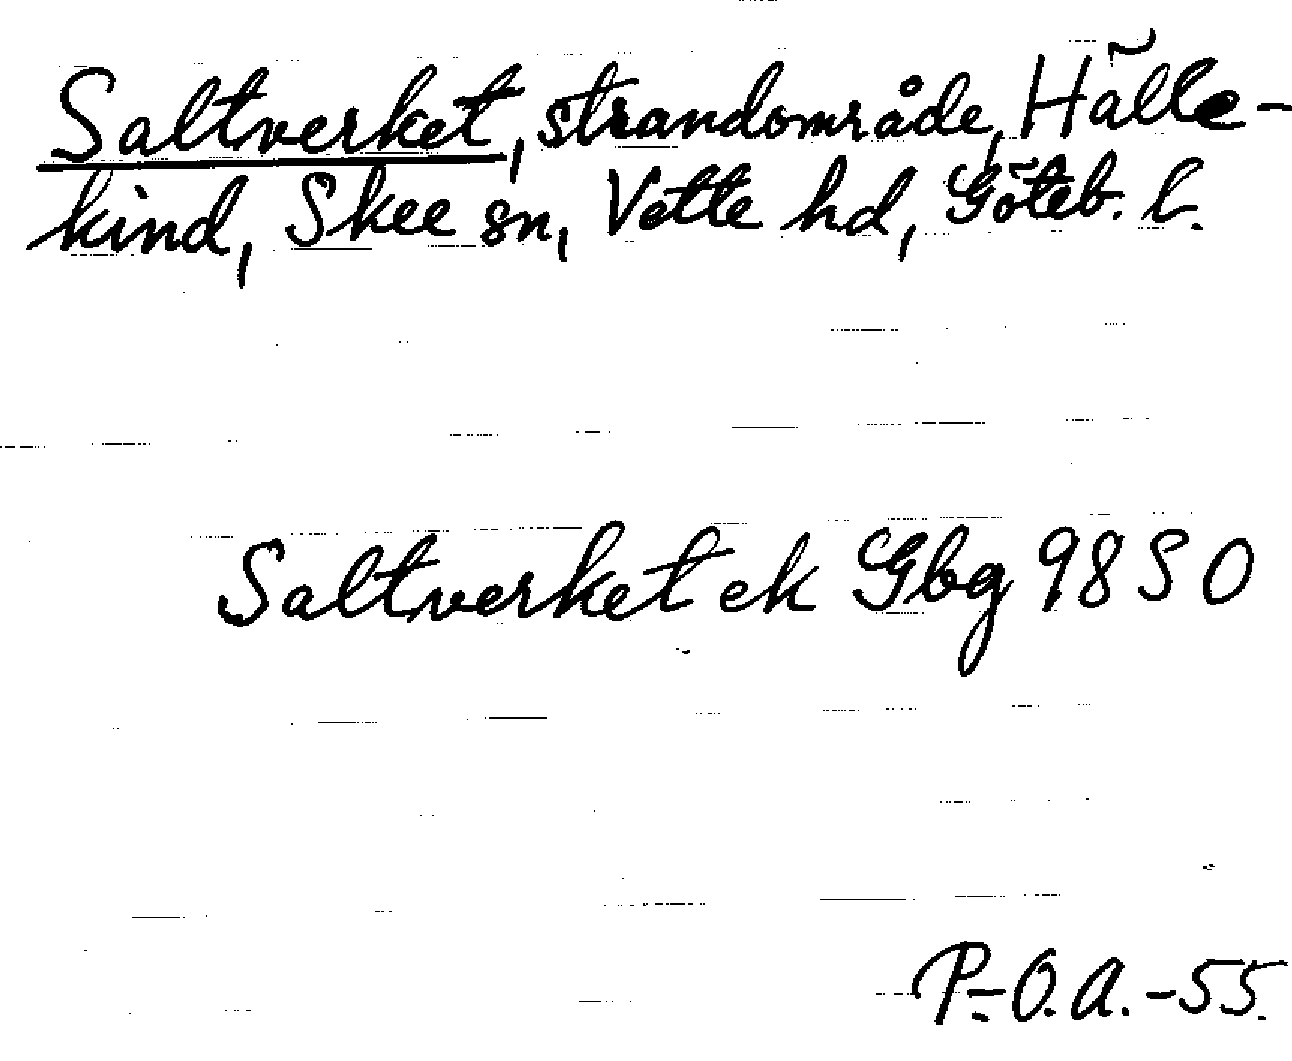 Saltverket, strandområde, Hälle-
kind, Skee sn, Vette hd, Göteb. l.
Saltverket ek Gbg 98 SO
P.-O.A.-55.